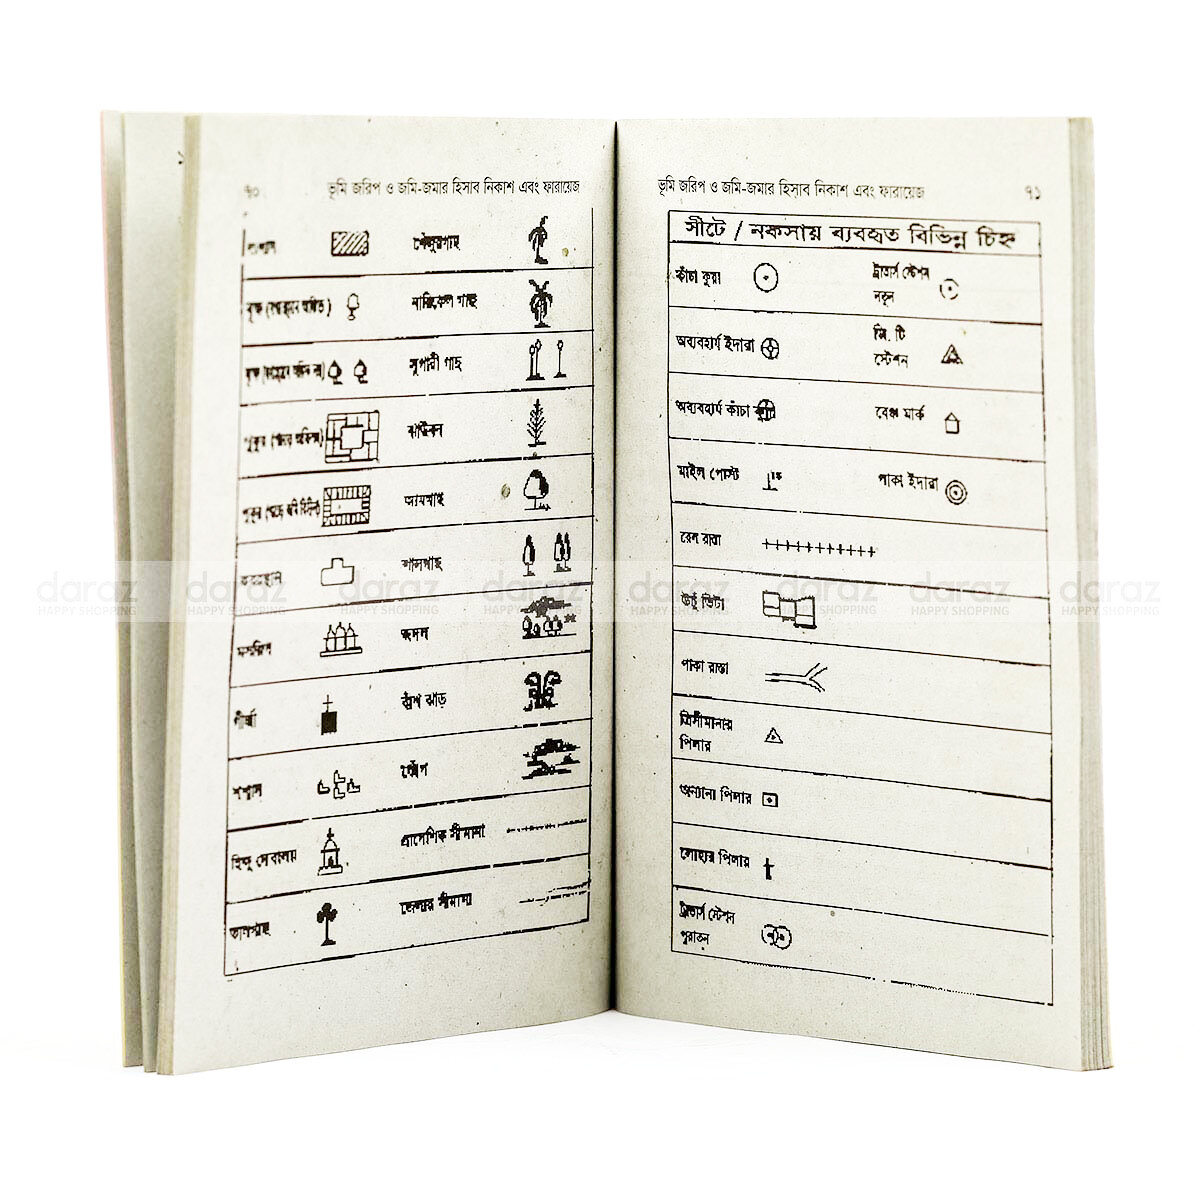 ৭০ ভূমি জরিপ ও জমি-জমার হিসাব নিকাশ এবং ফারায়েজ
খেজুরগাছ
নারিকেল গাছ
সুপারী গাছ
ঝাউবন
আমগাছ
শালগাছ
মসজিদ জঙ্গল
গীর্জা বাঁশ ঝাড়
শ্মশান ঝোঁপ
হিন্দু দেবালয় প্রাদেশিক সীমানা
তালগাছ জেলার সীমানা
ভূমি জরিপ ও জমি-জমার হিসাব নিকাশ এবং ফারায়েজ ৭১
সীটে / নকসায় ব্যবহৃত বিভিন্ন চিহ্ন
কাঁচা কুয়া ট্রাভার্স স্টেশন
নতুন
অব্যবহার্য ইদারা জি. টি
স্টেশন
অব্যবহার্য কাঁচা কুয়া বেঞ্চ মার্ক
মাইল পোস্ট পাকা ইদারা
রেল রাস্তা
উচুঁ ভিটা
পাকা রাস্তা
ত্রিসীমানার
পিলার
অন্যান্য পিলার
লোহার পিলার
ট্রাভার্স স্টেশন
পুরাতন
daraz daraz daraz daraz daraz daraz daraz daraz
HAPPY SHOPPING HAPPY SHOPPING HAPPY SHOPPING HAPPY SHOPPING HAPPY SHOPPING HAPPY SHOPPING HAPPY SHOPPING HAPPY SHOPPING